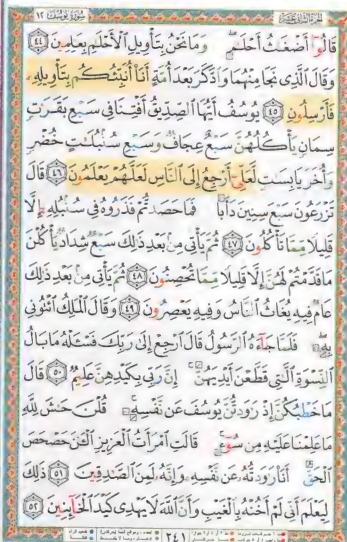 سُورَةُ يُوسُفَ ١٢
قَالُوٓا۟ أَضْغَٰثُ أَحْلَٰمٍ وَمَا نَحْنُ بِتَأْوِيلِ ٱلْأَحْلَٰمِ بِعَٰلِمِينَ ٤٤
وَقَالَ ٱلَّذِى نَجَا مِنْهُمَا وَٱدَّكَرَ بَعْدَ أُمَّةٍ أَنَا۠ أُنَبِّئُكُم بِتَأْوِيلِهِۦ
فَأَرْسِلُونِ ٤٥ يُوسُفُ أَيُّهَا ٱلصِّدِّيقُ أَفْتِنَا فِى سَبْعِ بَقَرَٰتٍ
سِمَانٍ يَأْكُلُهُنَّ سَبْعٌ عِجَافٌ وَسَبْعِ سُنۢبُلَٰتٍ خُضْرٍ
وَأُخَرَ يَابِسَٰتٍ لَّعَلِّىٓ أَرْجِعُ إِلَى ٱلنَّاسِ لَعَلَّهُمْ يَعْلَمُونَ ٤٦ قَالَ
تَزْرَعُونَ سَبْعَ سِنِينَ دَأَبًا فَمَا حَصَدتُّمْ فَذَرُوهُ فِى سُنۢبُلِهِۦٓ إِلَّا
قَلِيلًا مِّمَّا تَأْكُلُونَ ٤٧ ثُمَّ يَأْتِى مِنۢ بَعْدِ ذَٰلِكَ سَبْعٌ شِدَادٌ يَأْكُلْنَ
مَا قَدَّمْتُمْ لَهُنَّ إِلَّا قَلِيلًا مِّمَّا تُحْصِنُونَ ٤٨ ثُمَّ يَأْتِى مِنۢ بَعْدِ ذَٰلِكَ
عَامٌ فِيهِ يُغَاثُ ٱلنَّاسُ وَفِيهِ يَعْصِرُونَ ٤٩ وَقَالَ ٱلْمَلِكُ ٱئْتُونِى
بِهِۦ فَلَمَّا جَآءَهُ ٱلرَّسُولُ قَالَ ٱرْجِعْ إِلَىٰ رَبِّكَ فَسْـَٔلْهُ مَا بَالُ
ٱلنِّسْوَةِ ٱلَّٰتِى قَطَّعْنَ أَيْدِيَهُنَّ إِنَّ رَبِّى بِكَيْدِهِنَّ عَلِيمٌ ٥٠ قَالَ
مَا خَطْبُكُنَّ إِذْ رَٰوَدتُّنَّ يُوسُفَ عَن نَّفْسِهِۦ قُلْنَ حَٰشَ لِلَّهِ
مَا عَلِمْنَا عَلَيْهِ مِن سُوٓءٍ قَالَتِ ٱمْرَأَتُ ٱلْعَزِيزِ ٱلْـَٰٔنَ حَصْحَصَ
ٱلْحَقُّ أَنَا۠ رَٰوَدتُّهُۥ عَن نَّفْسِهِۦ وَإِنَّهُۥ لَمِنَ ٱلصَّٰدِقِينَ ٥١ ذَٰلِكَ
لِيَعْلَمَ أَنِّى لَمْ أَخُنْهُ بِٱلْغَيْبِ وَأَنَّ ٱللَّهَ لَا يَهْدِى كَيْدَ ٱلْخَآئِنِينَ ٥٢
٢٤١